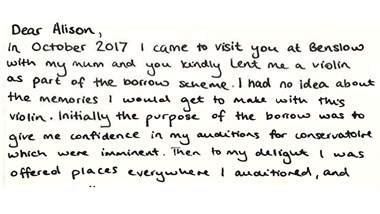 Dear Alison,
In October 2017 I came to visit you at Benslow
with my mum and you kindly lent me a violin
as part of the borrow scheme. I had no idea about
the memories I would get to make with this
violin. Initially the purpose of the borrow was to
give me confidence in my auditions for conservatoire
which were imminent. Then to my delight I was
offered places everywhere I auditioned, and